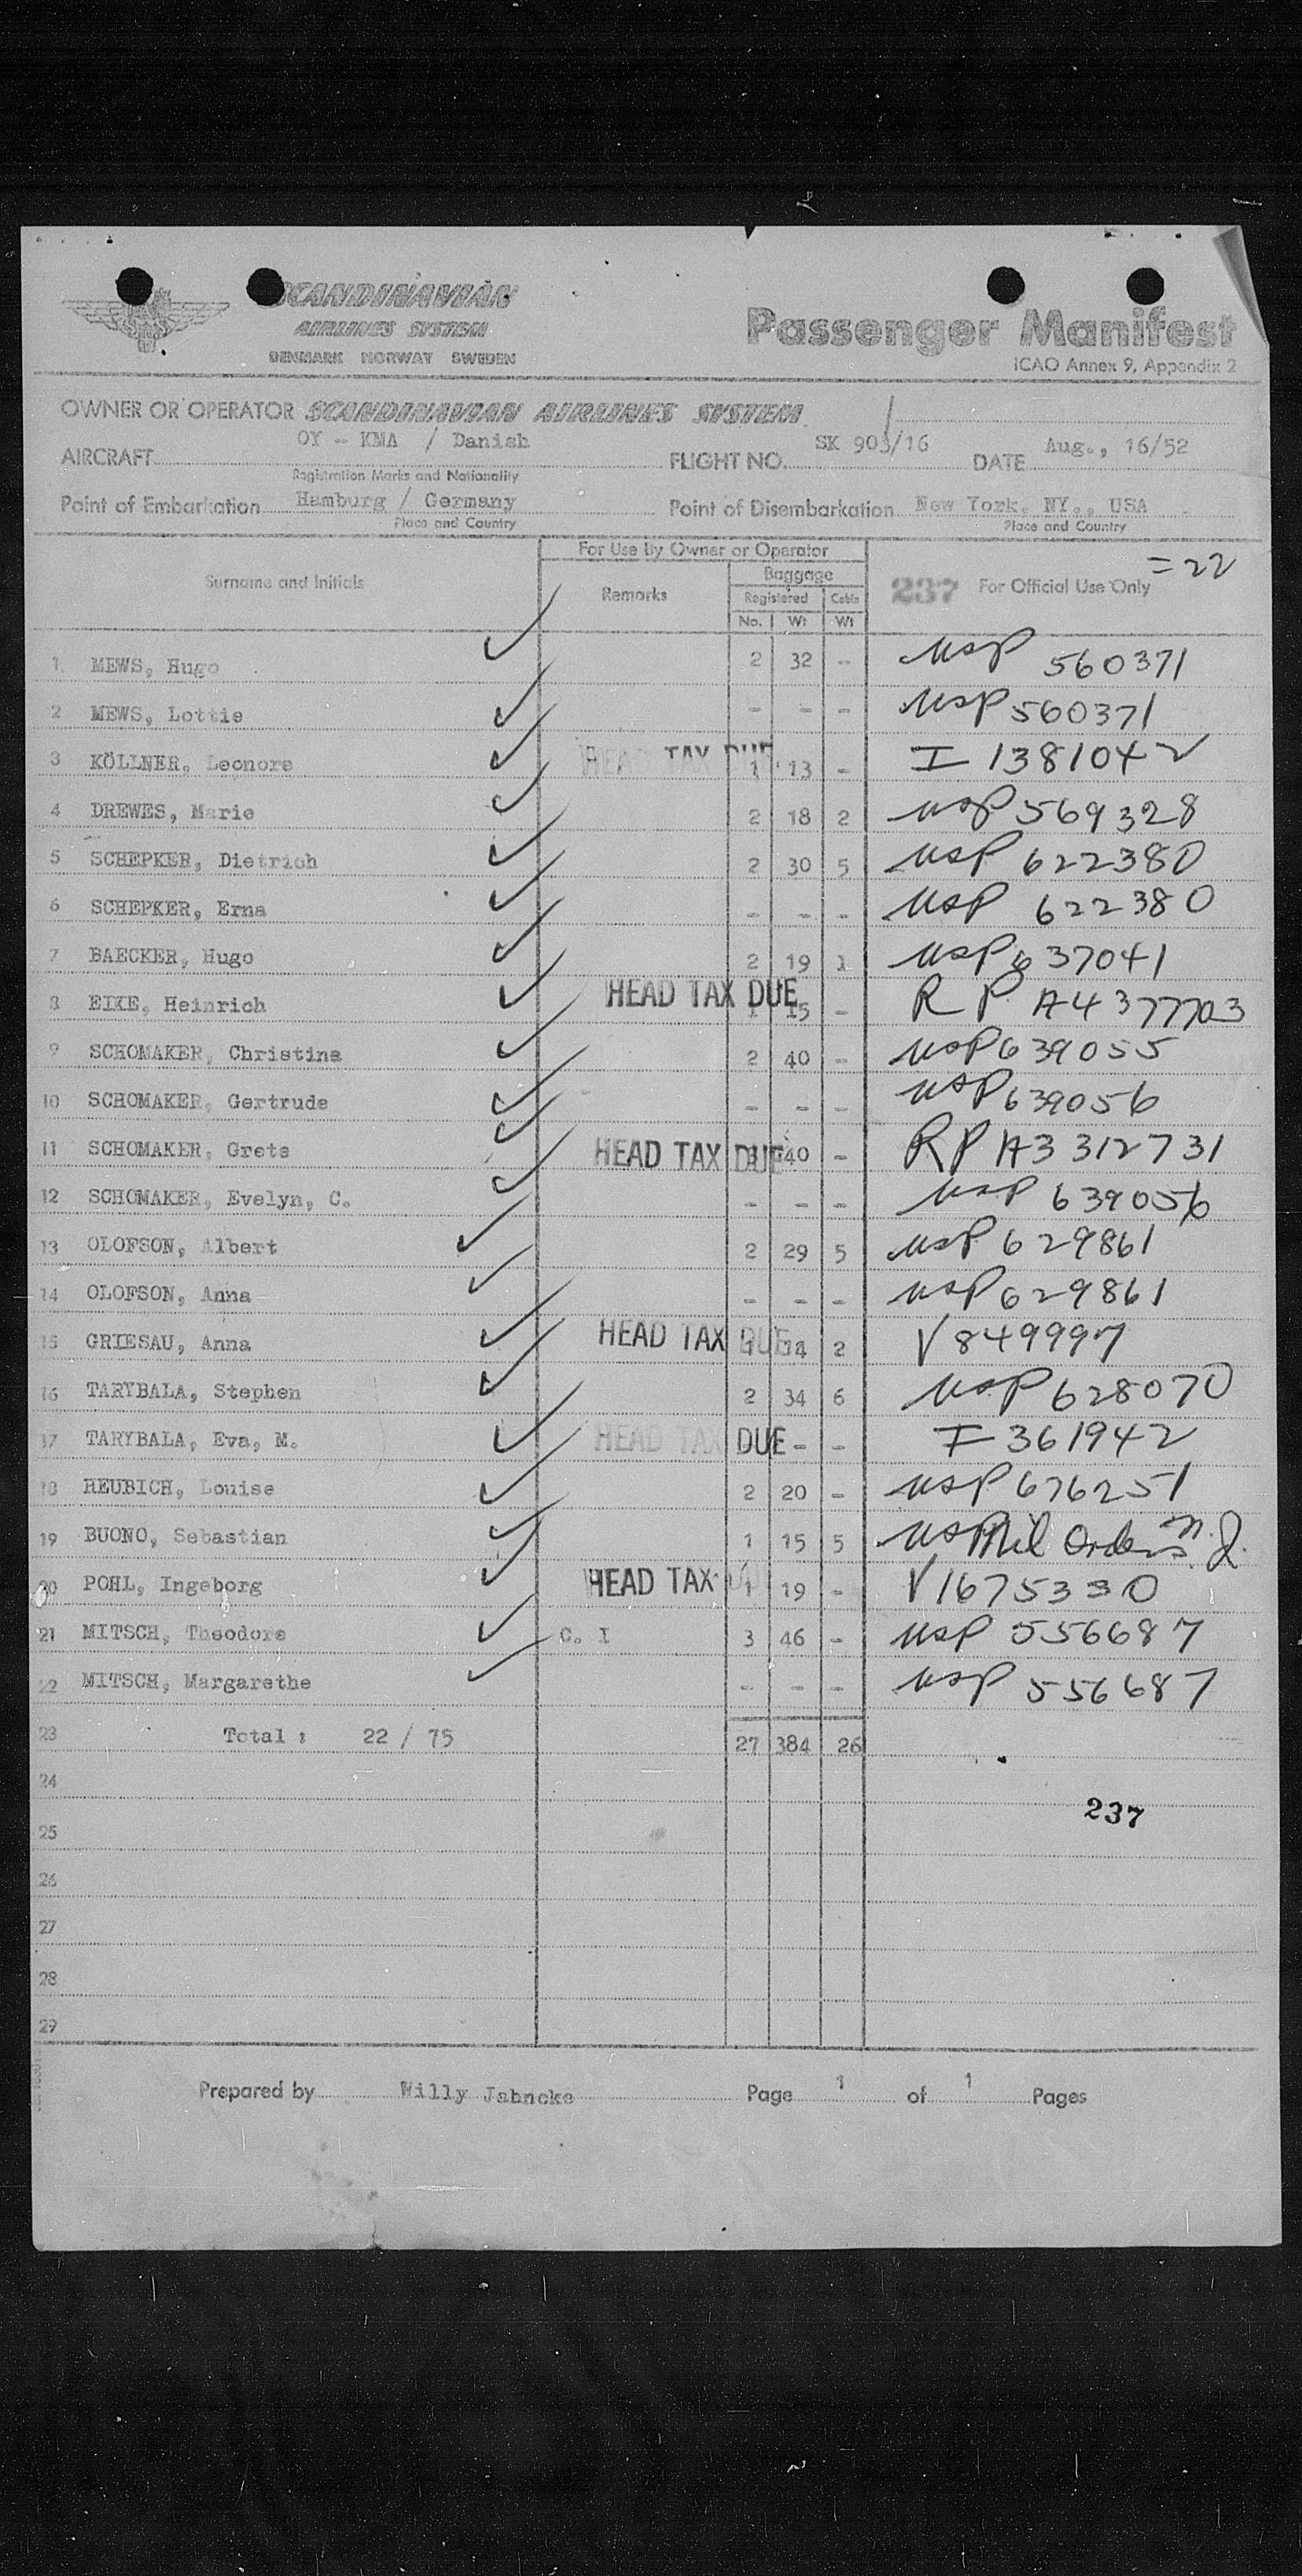 SCANDINAVIAN
AIRLINES SYSTEM
DENMARK NORWAY SWEDEN
Passenger Manifest
ICAO Annex 9, Appendix 2
OWNER OR OPERATOR SCANDINAVIAN AIRLINES SYSTEM
AIRCRAFT OY - KMA / Danish FLIGHT NO. SK 903/16 DATE Aug., 16/52
Registration Marks and Nationality
Point of Embarkation Hamburg / Germany Point of Disembarkation New York, NY., USA
Place and Country Place and Country
For Use By Owner or Operator
= 22
Surname and Initials Remarks Baggage 237 For Official Use Only
Registered Cabin
No. Wt Wt
1. MEWS, Hugo 2 32 - USP 560371
2 MEWS, Lottie - - - USP 560371
3 KÖLLNER, Leonore HEAD TAX DUE 1 13 - I 1381042
4 DREWES, Marie 2 18 2 USP 569328
5 SCHEPKER, Dietrich 2 30 5 USP 622380
6 SCHEPKER, Erna - - - USP 622380
7 BAECKER, Hugo 2 19 1 USP 637041
8 EIKE, Heinrich HEAD TAX DUE 1 15 - R P A4377703
9 SCHOMAKER, Christina 2 40 - USP 639055
10 SCHOMAKER, Gertrude - - - USP 639056
11 SCHOMAKER, Grete HEAD TAX DUE 40 - RP A3312731
12 SCHOMAKER, Evelyn, C. - - - USP 639056
13 OLOFSON, Albert 2 29 5 USP 629861
14 OLOFSON, Anna - - - USP 629861
15 GRIESAU, Anna HEAD TAX DUE 1 14 2 V 849997
16 TARYBALA, Stephen 2 34 6 USP 628070
17 TARYBALA, Eva, M. HEAD TAX DUE - - I 361942
18 REUBICH, Louise 2 20 - USP 676251
19 BUONO, Sebastian 1 15 5 USP Mil Orders N.J.
20 POHL, Ingeborg HEAD TAX DUE 1 19 - V1675330
21 MITSCH, Theodore C. I 3 46 - USP 556687
22 MITSCH, Margarethe - - - USP 556687
23 Total : 22 / 75 27 384 26
24
237
25
26
27
28
29
Prepared by Willy Jahncke Page 1 of 1 Pages